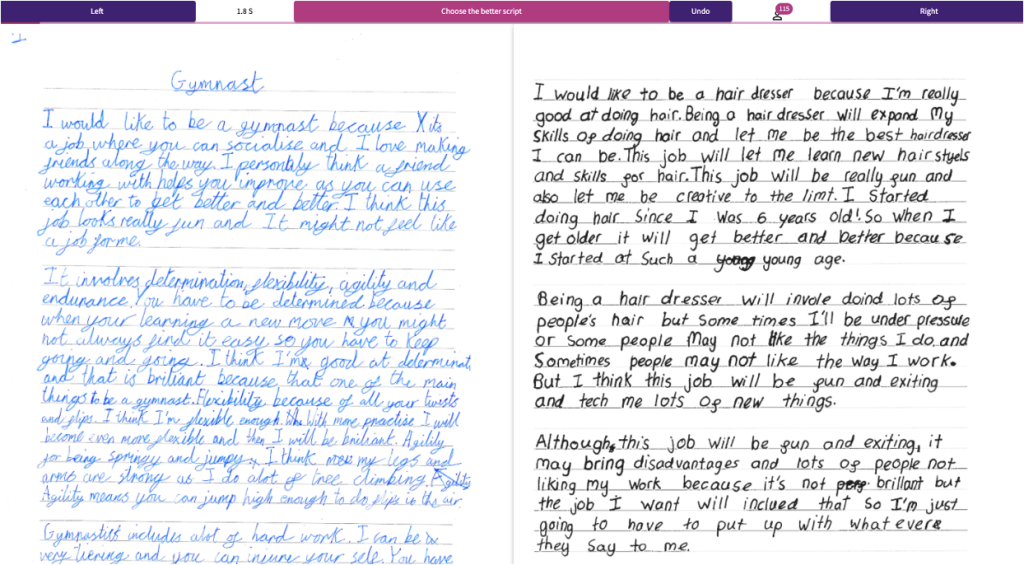 Left
1.8 S
Choose the better script
Undo
115
Right
Gymnast
I would like to be a gymnast because its
a job where you can socialise and I love making
friends along the way. I personbly think a friend
working with helps you improve as you can use
each other to get better and better. I think this
job looks really fun and It might not feel like
a job for me.
It involves determination, flexibility, agility and
endurance. You have to be determined because
when your learning a new move you might
not always find it easy, so you have to keep
going and going. I think I'm good at determinat
and that is briliant because that one of the main
things to be a gymnast. Flexibility because of all your twists
and flips. I think I'm flexible enough. With more practise I will
become even more flexible and then I will be briliant. Agility
for being springy and jumpy. I think my legs and
arms are strong as I do alot of tree climbing.
Agility means you can jump high enough to do flips in the air.
Gymnastics includes alot of hard work. I can be
very tiering and you can injure your self. You have
I would like to be a hair dresser because I'm really
good at doing hair. Being a hair dresser will expand my
skills of doing hair and let me be the best hairdresser
I can be. This job will let me learn new hair styels
and skills for hair. This job will be really fun and
also let me be creative to the limt. I Started
doing hair Since I was 6 years old!. So when I
get older it will get better and better because
I started at such a young age.
Being a hair dresser will invole doind lots of
people's hair but some times I'll be under pressure
or some people may not like the things I do. and
Sometimes people may not like the way I work.
But I think this job will be fun and exiting
and tech me lots of new things.
Although, this job will be fun and exiting, it
may bring disadvantages and lots of people not
liking my work because it's not brillant but
the job I want will inclued that so I'm just
going to have to put up with what evere
they say to me.